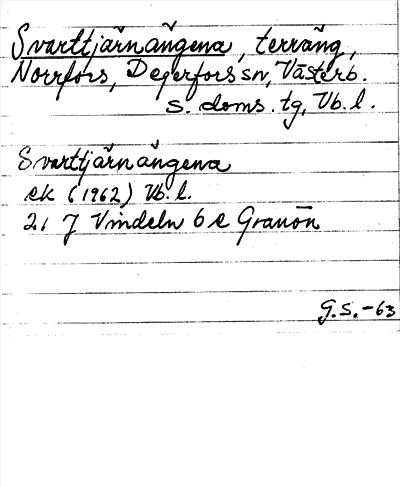 Svarttjärnängena, terräng,
Norrfors, Degerfors sn, Västerb.
s. doms. tg, Vb. l.
Svarttjärnängena
ek (1962) Vb. l.
21 J Vindeln 6 e Granön
G.S. -63